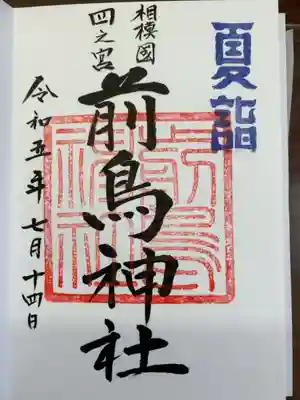 夏詣
相模國
四之宮
前鳥神社
令和五年七月十四日